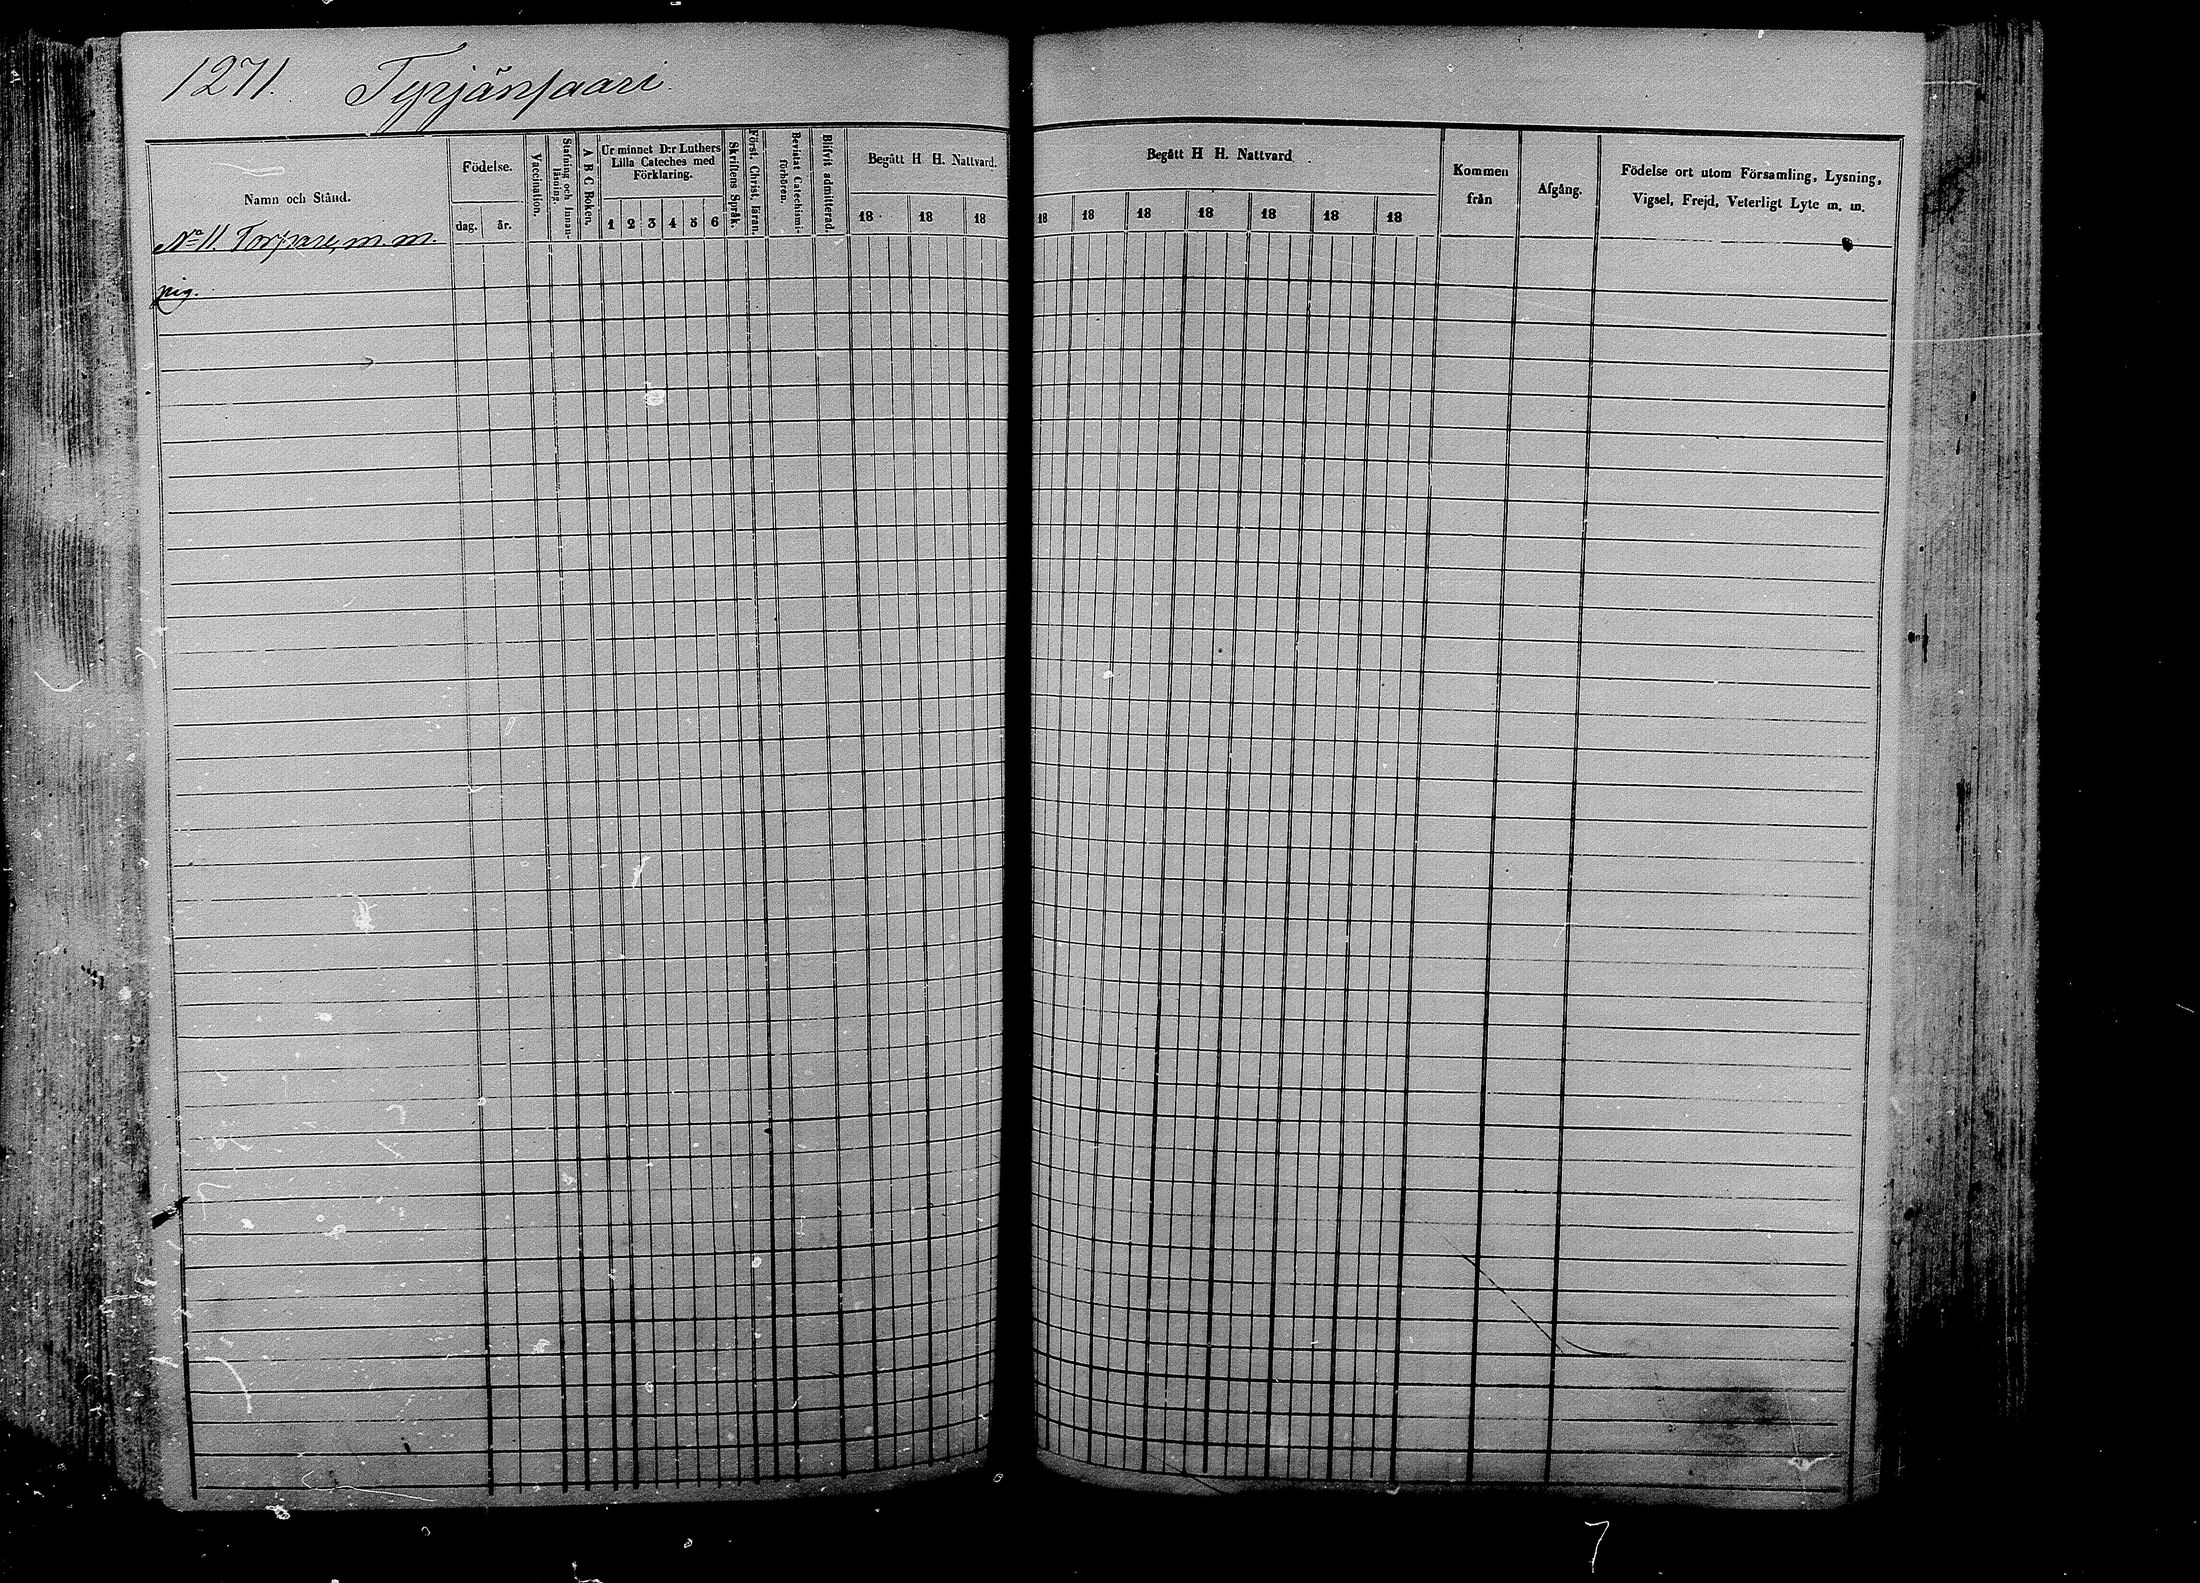 1271. Tyrjänsaari.
Namn och Stånd.
Födelse.
dag. år.
Vaccination.
Stafning och Innan-
läsning.
A B C Boken.
Ur minnet D:r Luthers
Lilla Cateches med
Förklaring.
1 2 3 4 5 6
Skriftens Språk.
Först. Christ. läran.
Bevistat Catechismi-
förhören.
Blifvit admitterad.
Begått H H. Nattvard.
18 18 18
Begått H H. Nattvard
18 18 18 18 18 18 18
Kommen
från
Afgång.
Födelse ort utom Församling, Lysning,
Vigsel, Frejd, Veterligt Lyte m. m.
No 11. Torpare, m. m.
pig.
7